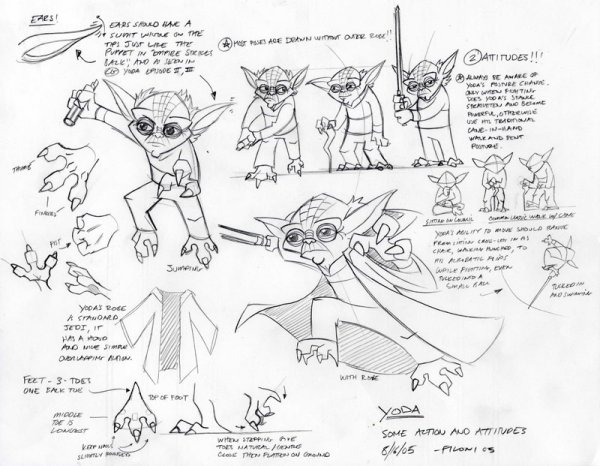 EARS!
EARS SHOULD HAVE A
SLIGHT WRINKLE ON THE
TIPS JUST LIKE THE
PUPPET IN "EMPIRE STRIKES
BACK", AND AS SEEN IN
CG YODA EPISODE II, III
MOST POSES ARE DRAWN WITHOUT OVER ROBE!!
2 ATTITUDES!!!
ALWAYS BE AWARE OF
YODA'S POSTURE CHANGE.
ONLY WHEN FIGHTING
DOES YODA'S STANCE
STRAIGHTEN AND BECOME
POWERFUL, OTHERWISE
USE HIS TRADITIONAL
CANE-IN-HAND
WALK AND BENT
POSTURE.
THUMB
FINGERS
FIST
JUMPING
SITTING ON COUNCIL
COMMON CLASSIC WALK W/ CANE
YODA'S ABILITY TO MOVE SHOULD RANGE
FROM SITTING CROSS-LEG IN HIS
CHAIR, WALKING HUNCHED, TO
HIS ACROBATIC FLIPS
WHILE FIGHTING, EVEN
TUCKED INTO A
SMALL BALL
TUCKED IN
AND SPINNING
YODA'S ROBE
IS STANDARD
JEDI, IT
HAS A HOOD
AND NICE SIMPLE
OVERLAPPING ACTION.
WITH ROBE
FEET - 3 - TOES
ONE BACK TOE
TOP OF FOOT
MIDDLE
TOE IS
LONGEST
KEEP NAILS
SLIGHTLY ROUNDED
WHEN STEPPING GIVE
TOES NATURAL / CENTRE
CLOSE THEN FLATTEN ON GROUND
YODA
SOME ACTION AND ATTITUDES
8/6/05 - FILONI 05